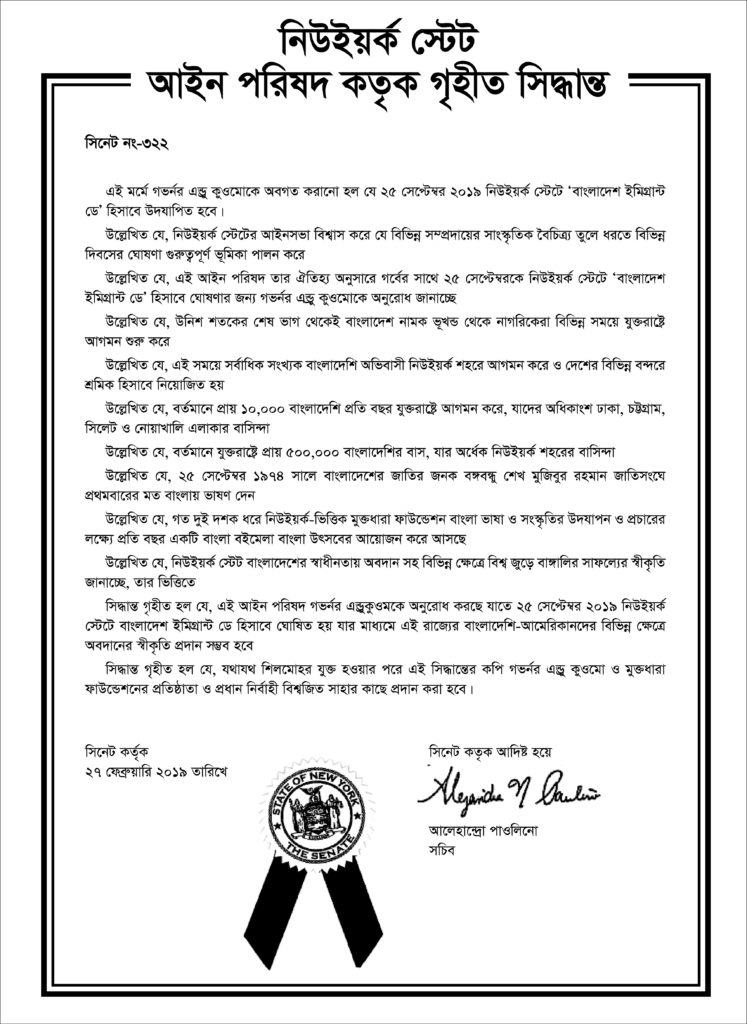 নিউইয়র্ক স্টেট
আইন পরিষদ কতৃক গৃহীত সিদ্ধান্ত
সিনেট নং-৩২২
এই মর্মে গভর্নর এন্ড্রু কুওমোকে অবগত করানো হল যে ২৫ সেপ্টেম্বর ২০১৯ নিউইয়র্ক স্টেটে ‘বাংলাদেশ ইমিগ্রান্ট
ডে’ হিসাবে উদযাপিত হবে।
উল্লেখিত যে, নিউইয়র্ক স্টেটের আইনসভা বিশ্বাস করে যে বিভিন্ন সম্প্রদায়ের সাংস্কৃতিক বৈচিত্র্য তুলে ধরতে বিভিন্ন
দিবসের ঘোষণা গুরুত্বপূর্ণ ভূমিকা পালন করে
উল্লেখিত যে, এই আইন পরিষদ তার ঐতিহ্য অনুসারে গর্বের সাথে ২৫ সেপ্টেম্বরকে নিউইয়র্ক স্টেটে ‘বাংলাদেশ
ইমিগ্রান্ট ডে’ হিসাবে ঘোষণার জন্য গভর্নর এন্ড্রু কুওমোকে অনুরোধ জানাচ্ছে
উল্লেখিত যে, উনিশ শতকের শেষ ভাগ থেকেই বাংলাদেশ নামক ভূখন্ড থেকে নাগরিকেরা বিভিন্ন সময়ে যুক্তরাষ্ট্রে
আগমন শুরু করে
উল্লেখিত যে, এই সময়ে সর্বাধিক সংখ্যক বাংলাদেশি অভিবাসী নিউইয়র্ক শহরে আগমন করে ও দেশের বিভিন্ন বন্দরে
শ্রমিক হিসাবে নিয়োজিত হয়
উল্লেখিত যে, বর্তমানে প্রায় ১০,০০০ বাংলাদেশি প্রতি বছর যুক্তরাষ্ট্রে আগমন করে, যাদের অধিকাংশ ঢাকা, চট্টগ্রাম,
সিলেট ও নোয়াখালি এলাকার বাসিন্দা
উল্লেখিত যে, বর্তমানে যুক্তরাষ্ট্রে প্রায় ৫০০,০০০ বাংলাদেশির বাস, যার অর্ধেক নিউইয়র্ক শহরের বাসিন্দা
উল্লেখিত যে, ২৫ সেপ্টেম্বর ১৯৭৪ সালে বাংলাদেশের জাতির জনক বঙ্গবন্ধু শেখ মুজিবুর রহমান জাতিসংঘে
প্রথমবারের মত বাংলায় ভাষণ দেন
উল্লেখিত যে, গত দুই দশক ধরে নিউইয়র্ক-ভিত্তিক মুক্তধারা ফাউন্ডেশন বাংলা ভাষা ও সংস্কৃতির উদযাপন ও প্রচারের
লক্ষ্যে প্রতি বছর একটি বাংলা বইমেলা বাংলা উৎসবের আয়োজন করে আসছে
উল্লেখিত যে, নিউইয়র্ক স্টেট বাংলাদেশের স্বাধীনতায় অবদান সহ বিভিন্ন ক্ষেত্রে বিশ্ব জুড়ে বাঙ্গালির সাফল্যের স্বীকৃতি
জানাচ্ছে, তার ভিত্তিতে
সিদ্ধান্ত গৃহীত হল যে, এই আইন পরিষদ গভর্নর এন্ড্রুকুওমকে অনুরোধ করছে যাতে ২৫ সেপ্টেম্বর ২০১৯ নিউইয়র্ক
স্টেটে বাংলাদেশ ইমিগ্রান্ট ডে হিসাবে ঘোষিত হয় যার মাধ্যমে এই রাজ্যের বাংলাদেশি-আমেরিকানদের বিভিন্ন ক্ষেত্রে
অবদানের স্বীকৃতি প্রদান সম্ভব হবে
সিদ্ধান্ত গৃহীত হল যে, যথাযথ শিলমোহর যুক্ত হওয়ার পরে এই সিদ্ধান্তের কপি গভর্নর এন্ড্রু কুওমো ও মুক্তধারা
ফাউন্ডেশনের প্রতিষ্ঠাতা ও প্রধান নির্বাহী বিশ্বজিত সাহার কাছে প্রদান করা হবে।
সিনেট কর্তৃক
২৭ ফেব্রুয়ারি ২০১৯ তারিখে
STATE OF NEW YORK
THE SENATE
সিনেট কতৃক আদিষ্ট হয়ে
Alejandra N Paulino
আলেহান্দ্রো পাওলিনো
সচিব